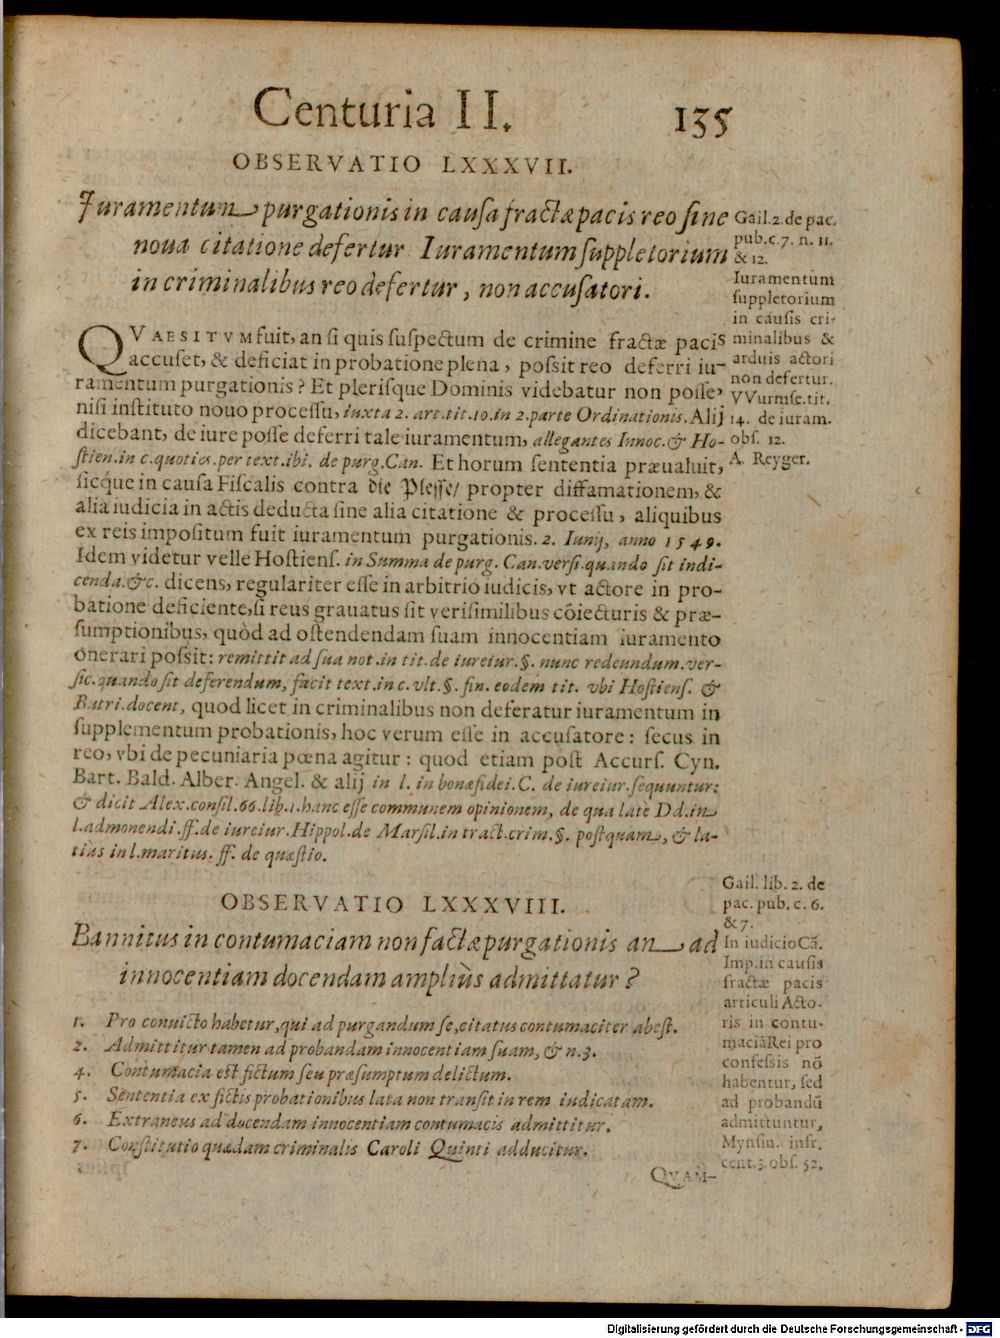 Centuria II. 135
OBSERVATIO LXXXVII.
Juramentum purgationis in causa fractæ pacis reo sine
noua citatione defertur Iuramentum suppletorium
in criminalibus reo defertur, non accusatori.
Gail. 2. de pac.
pub. c. 7. n. 11.
& 12.
Iuramentum
suppletorium
in causis cri-
minalibus &
arduis actori
non defertur.
VVurmse. tit.
14. de iuram.
obs. 12.
A. Reyger.
QVAESITVM fuit, an si quis suspectum de crimine fractæ pacis
accuset, & deficiat in probatione plena, possit reo deferri iu-
ramentum purgationis? Et plerisque Dominis videbatur non posse,
nisi instituto nouo processu, iuxta 2. art. tit. 10. in 2. parte Ordinationis. Alij
dicebant, de iure posse deferri tale iuramentum, allegantes Innoc. & Ho-
stien. in c. quoties. per text. ibi. de purg. Can. Et horum sententia præualuit,
sicque in causa Fiscalis contra die Plesse/ propter diffamationem, &
alia iudicia in actis deducta sine alia citatione & processu, aliquibus
ex reis impositum fuit iuramentum purgationis. 2. Iunij, anno 1549.
Idem videtur velle Hostiens. in Summa de purg. Can. versi. quando sit indi-
cenda. &c. dicens, regulariter esse in arbitrio iudicis, vt actore in pro-
batione deficiente, si reus grauatus sit verisimilibus cõiecturis & præ-
sumptionibus, quòd ad ostendendam suam innocentiam iuramento
onerari possit: remittit ad sua not. in tit. de iureiur. §. nunc redeundum. ver-
sic. quando sit deferendum, facit text. in c. vlt. §. fin. eodem tit. vbi Hostiens. &
Butri. docent, quod licet in criminalibus non deferatur iuramentum in
supplementum probationis, hoc verum esse in accusatore: secus in
reo, vbi de pecuniaria pœna agitur: quod etiam post Accurs. Cyn.
Bart. Bald. Alber. Angel. & alij in l. in bonæ fidei. C. de iureiur. sequuntur:
& dicit Alex. consil. 66. lib. 1. hanc esse communem opinionem, de qua latè Dd. in
l. admonendi. ff. de iureiur. Hippol. de Marsil. in tract. crim. §. postquam, & la-
tius in l. maritus. ff. de quæstio.
OBSERVATIO LXXXVIII.
Bannitus in contumaciam non factæ purgationis an ad
innocentiam docendam ampliùs admittatur?
Gail. lib. 2. de
pac. pub. c. 6.
& 7.
In iudicio Cã.
Imp. in causis
fractæ pacis
articuli Acto-
ris in contu-
maciã Rei pro
confessis nõ
habentur, sed
ad probandũ
admittuntur,
Mynsin. insr.
cent. 3. obs. 52.
1. Pro conuicto habetur, qui ad purgandum se, citatus contumaciter abest.
2. Admittitur tamen ad probandam innocentiam suam, & n. 3.
4. Contumacia est fictum seu præsumptum delictum.
5. Sententia ex fictis probationibus lata non transit in rem iudicatam.
6. Extraneus ad docendam innocentiam contumacis admittitur.
7. Constitutio quædam criminalis Caroli Quinti adducitur.
QVAM-
Digitalisierung gefördert durch die Deutsche Forschungsgemeinschaft - DFG